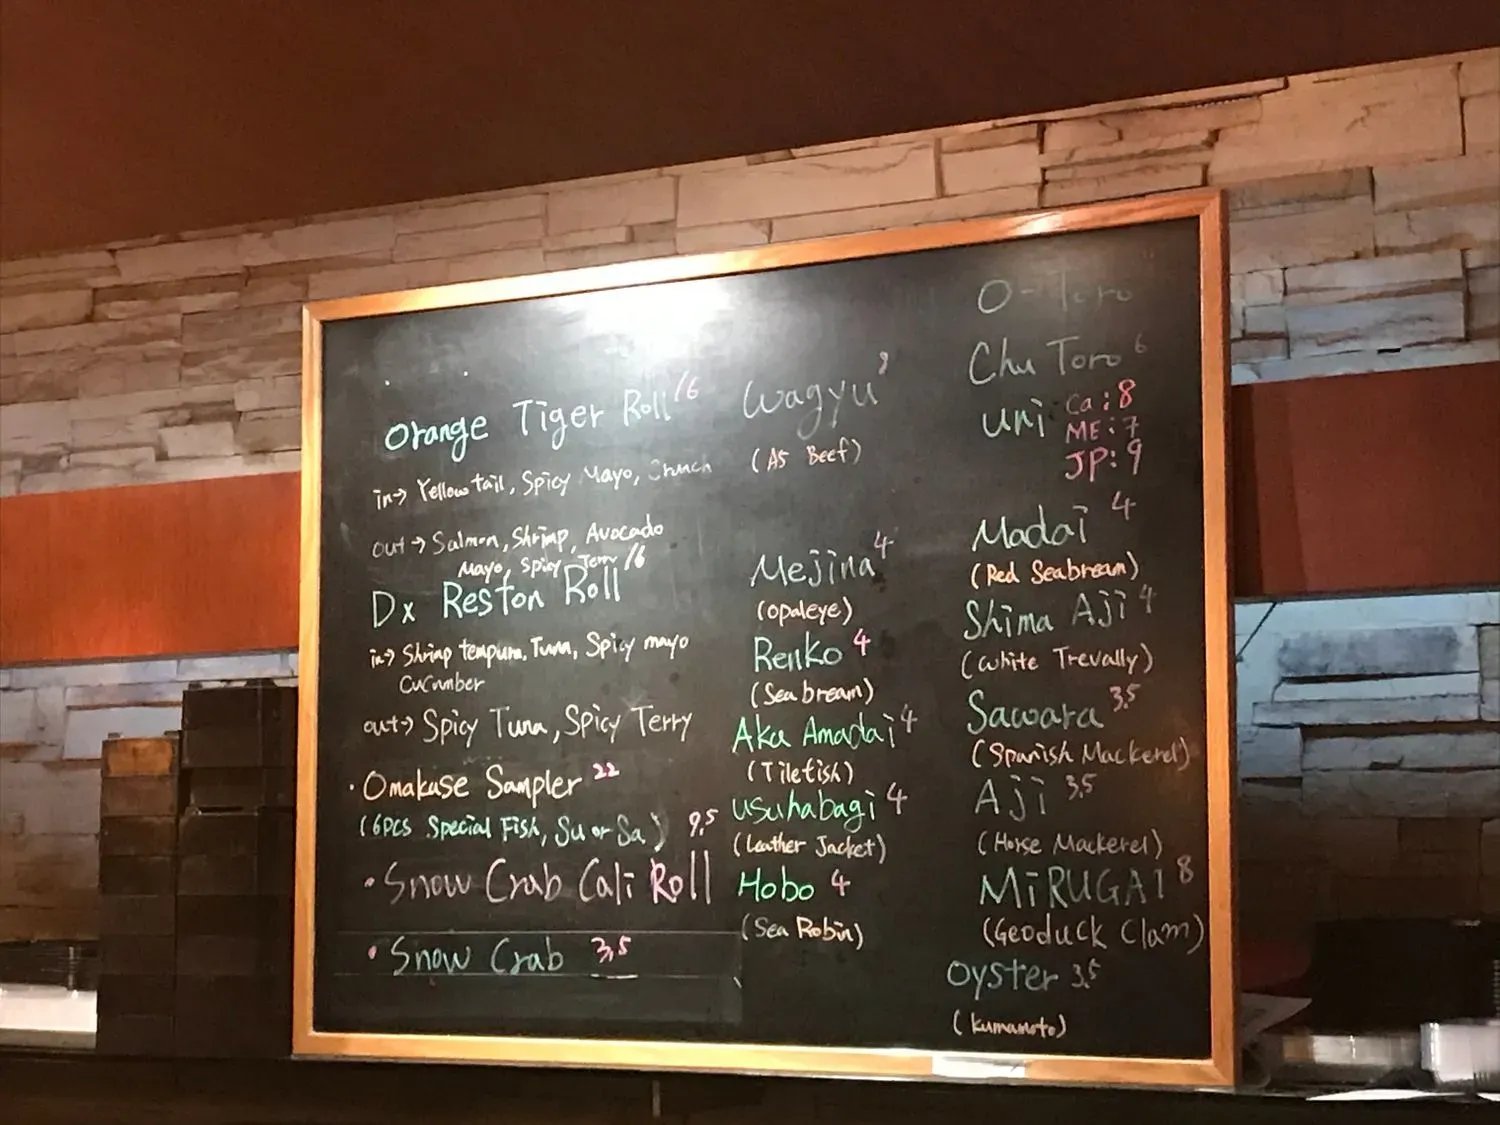 Orange Tiger Roll 16
in → Yellowtail, Spicy Mayo, Crunch
out → Salmon, Shrimp, Avocado
Mayo, Spicy Terry
Dx Reston Roll 16
in → Shrimp tempura, Tuna, Spicy mayo
Cucumber
out → Spicy Tuna, Spicy Terry
· Omakase Sampler 22
(6PCS Special Fish, Su or Sa)
• Snow Crab Cali Roll 9.5
• Snow Crab 3.5
Wagyu
(A5 Beef)
Mejina 4
(opaleye)
Renko 4
(Sea bream)
Aka Amadai 4
(Tilefish)
Usuhabagi 4
(Leather Jacket)
Hobo 4
(Sea Robin)
O-Toro
Chu Toro 6
uni Ca: 8
ME: 7
JP: 9
Madai 4
(Red Seabream)
Shima Aji 4
(White Trevally)
Sawara 3.5
(Spanish Mackerel)
Aji 3.5
(Horse Mackerel)
MiRUGAI 8
(Geoduck Clam)
Oyster 3.5
(kumamoto)